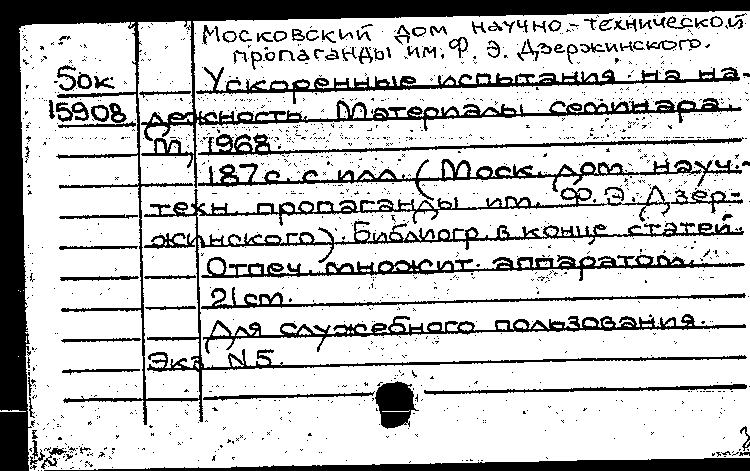 Московский дом научно-технической
пропаганды им. Ф. Э. Дзержинского.
5ок Ускоренные испытания на на-
15908 дежность. Материалы семинара.
М, 1968.
187с. с илл. (Моск. дом науч.-
техн. пропаганды им. Ф. Э. Дзер-
жинского). Библиогр. в конце статей.
Отпеч. множит. аппаратом.
21cm.
Для служебного пользования.
Экз N5.